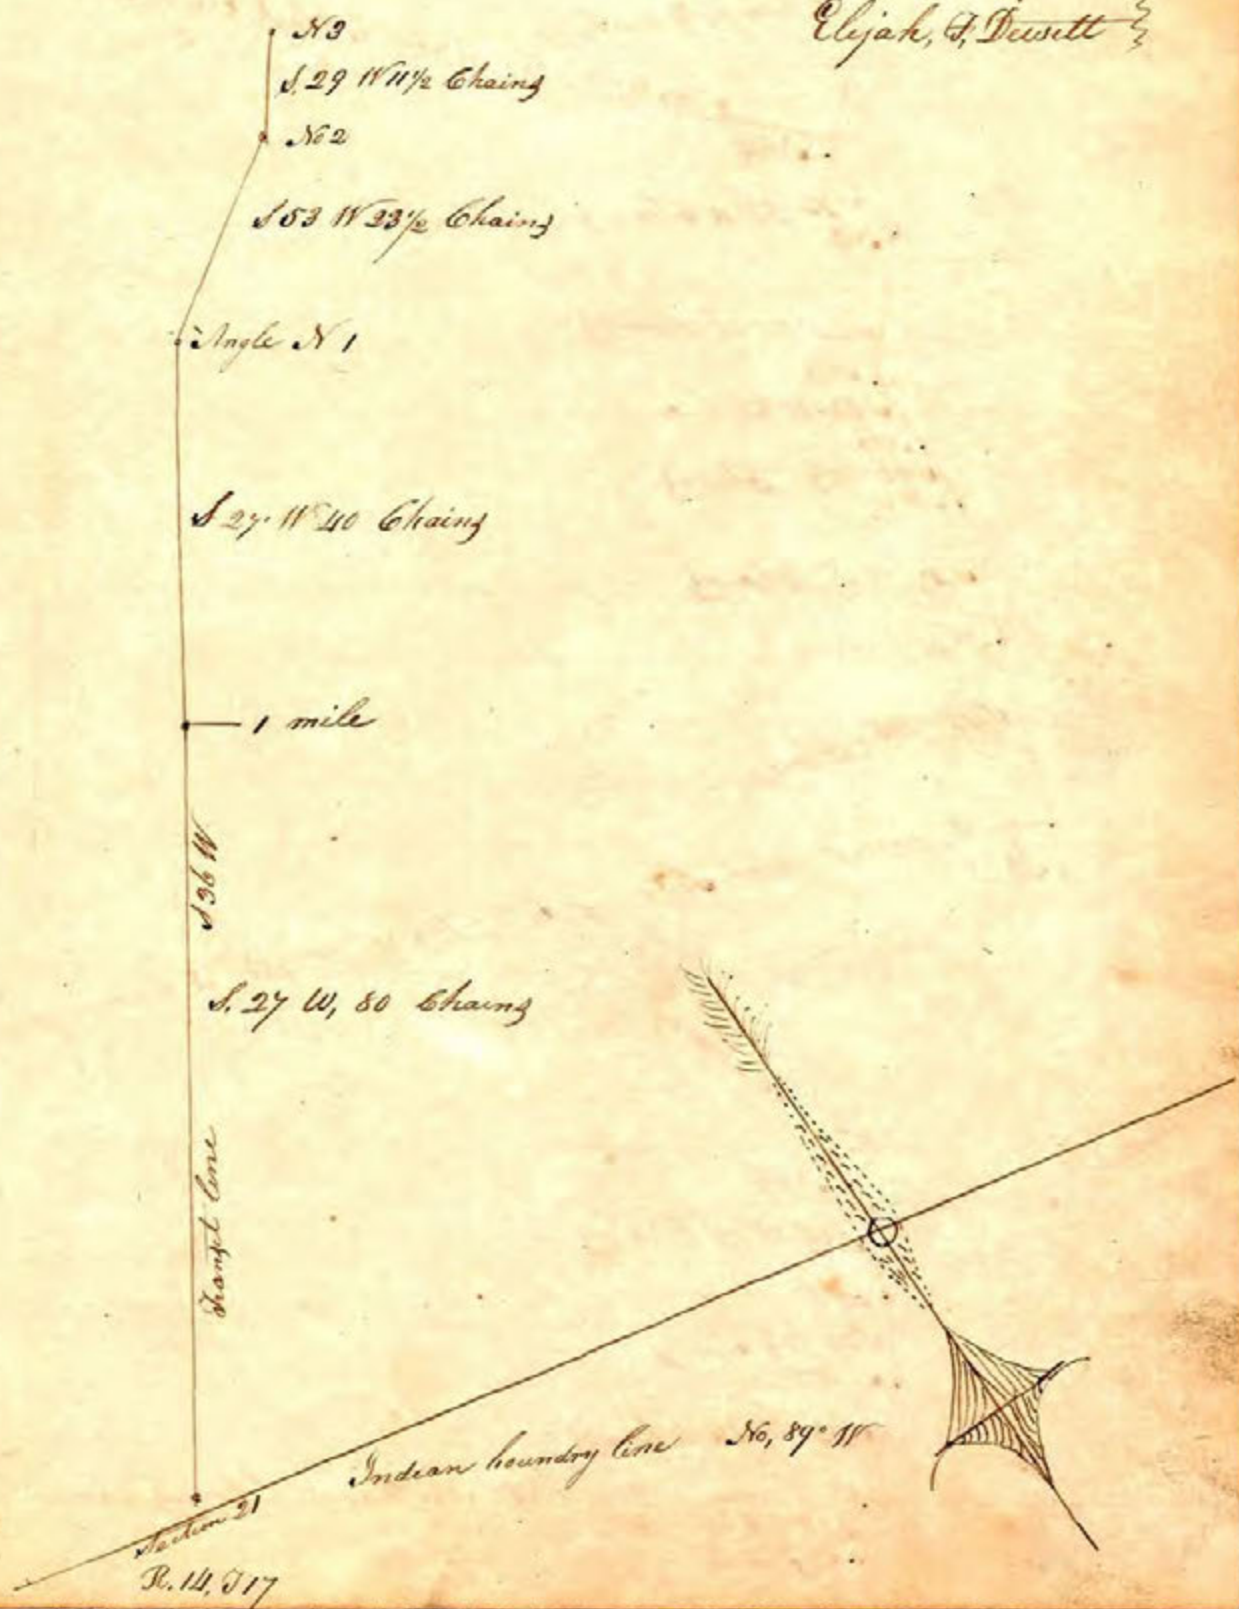 Elijah, F, Dewett
N 3
S. 29 W 11 1/2 Chains
No 2
S 53 W 23 1/2 Chains
Angle N 1
S 27. W 40 Chains
1 mile
S 36 W
S. 27 W, 80 Chains
Transet line
Indean boundry line No, 89° W
Section 21
R. 14, T 17